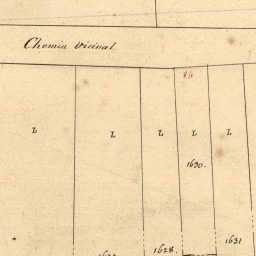 Chemin vicinal
86
L L L L L
1630.
1631
1628.